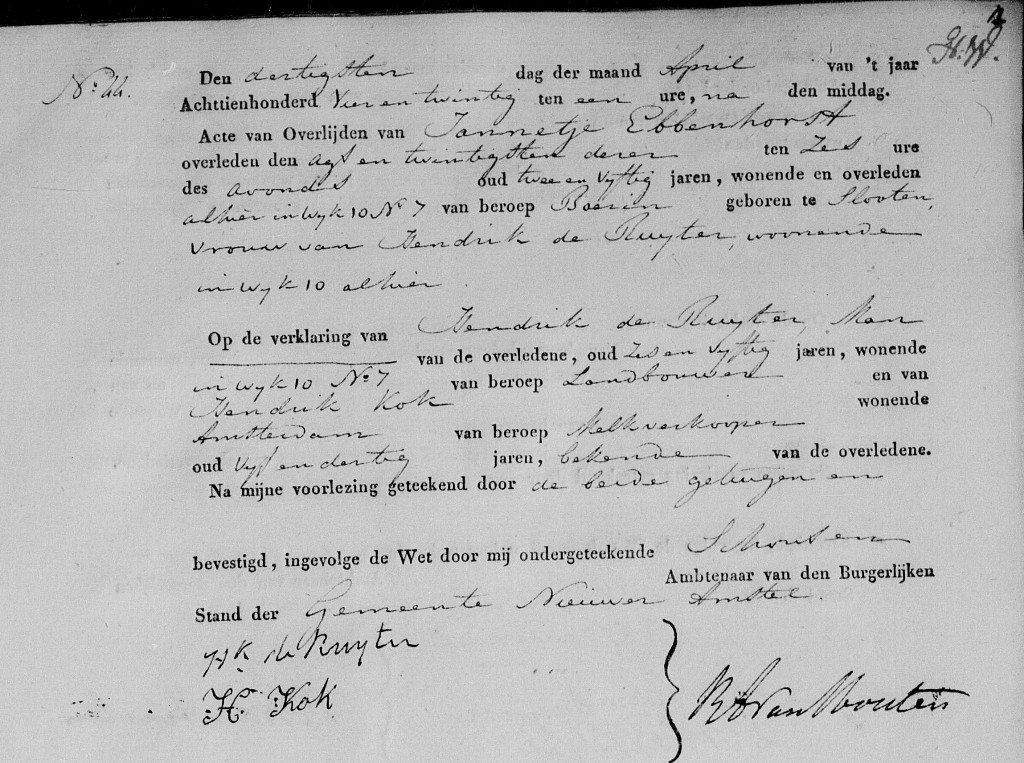 Nº 44.
Den dertigsten dag der maand April van 't jaar
Achttienhonderd Vier en twintig ten een ure, na den middag.
Acte van Overlijden van Jannetje Ebbenhorst
overleden den agt en twintigsten dezer ten Zes ure
des avonds oud twee en vyftig jaren, wonende en overleden
alhier in Wyk 10 Nº 7 van beroep Boerin geboren te Slooten,
vrouw van Hendrik de Ruyter, woonende
in Wyk 10 alhier.
Op de verklaring van Hendrik de Ruyter, Man
van de overledene, oud Zes en vyftig jaren, wonende
in Wyk 10 Nº 7 van beroep Landbouwer en van
Hendrik Kok wonende
Amsterdam van beroep Melkverkooper
oud Vyf en dertig jaren, bekende van de overledene.
Na mijne voorlezing geteekend door de beide getuigen en
bevestigd, ingevolge de Wet door mij ondergeteekende Schout en
Ambtenaar van den Burgerlijken
Stand der Gemeente Nieuwer Amstel.
Hk de Ruyter
H. Kok